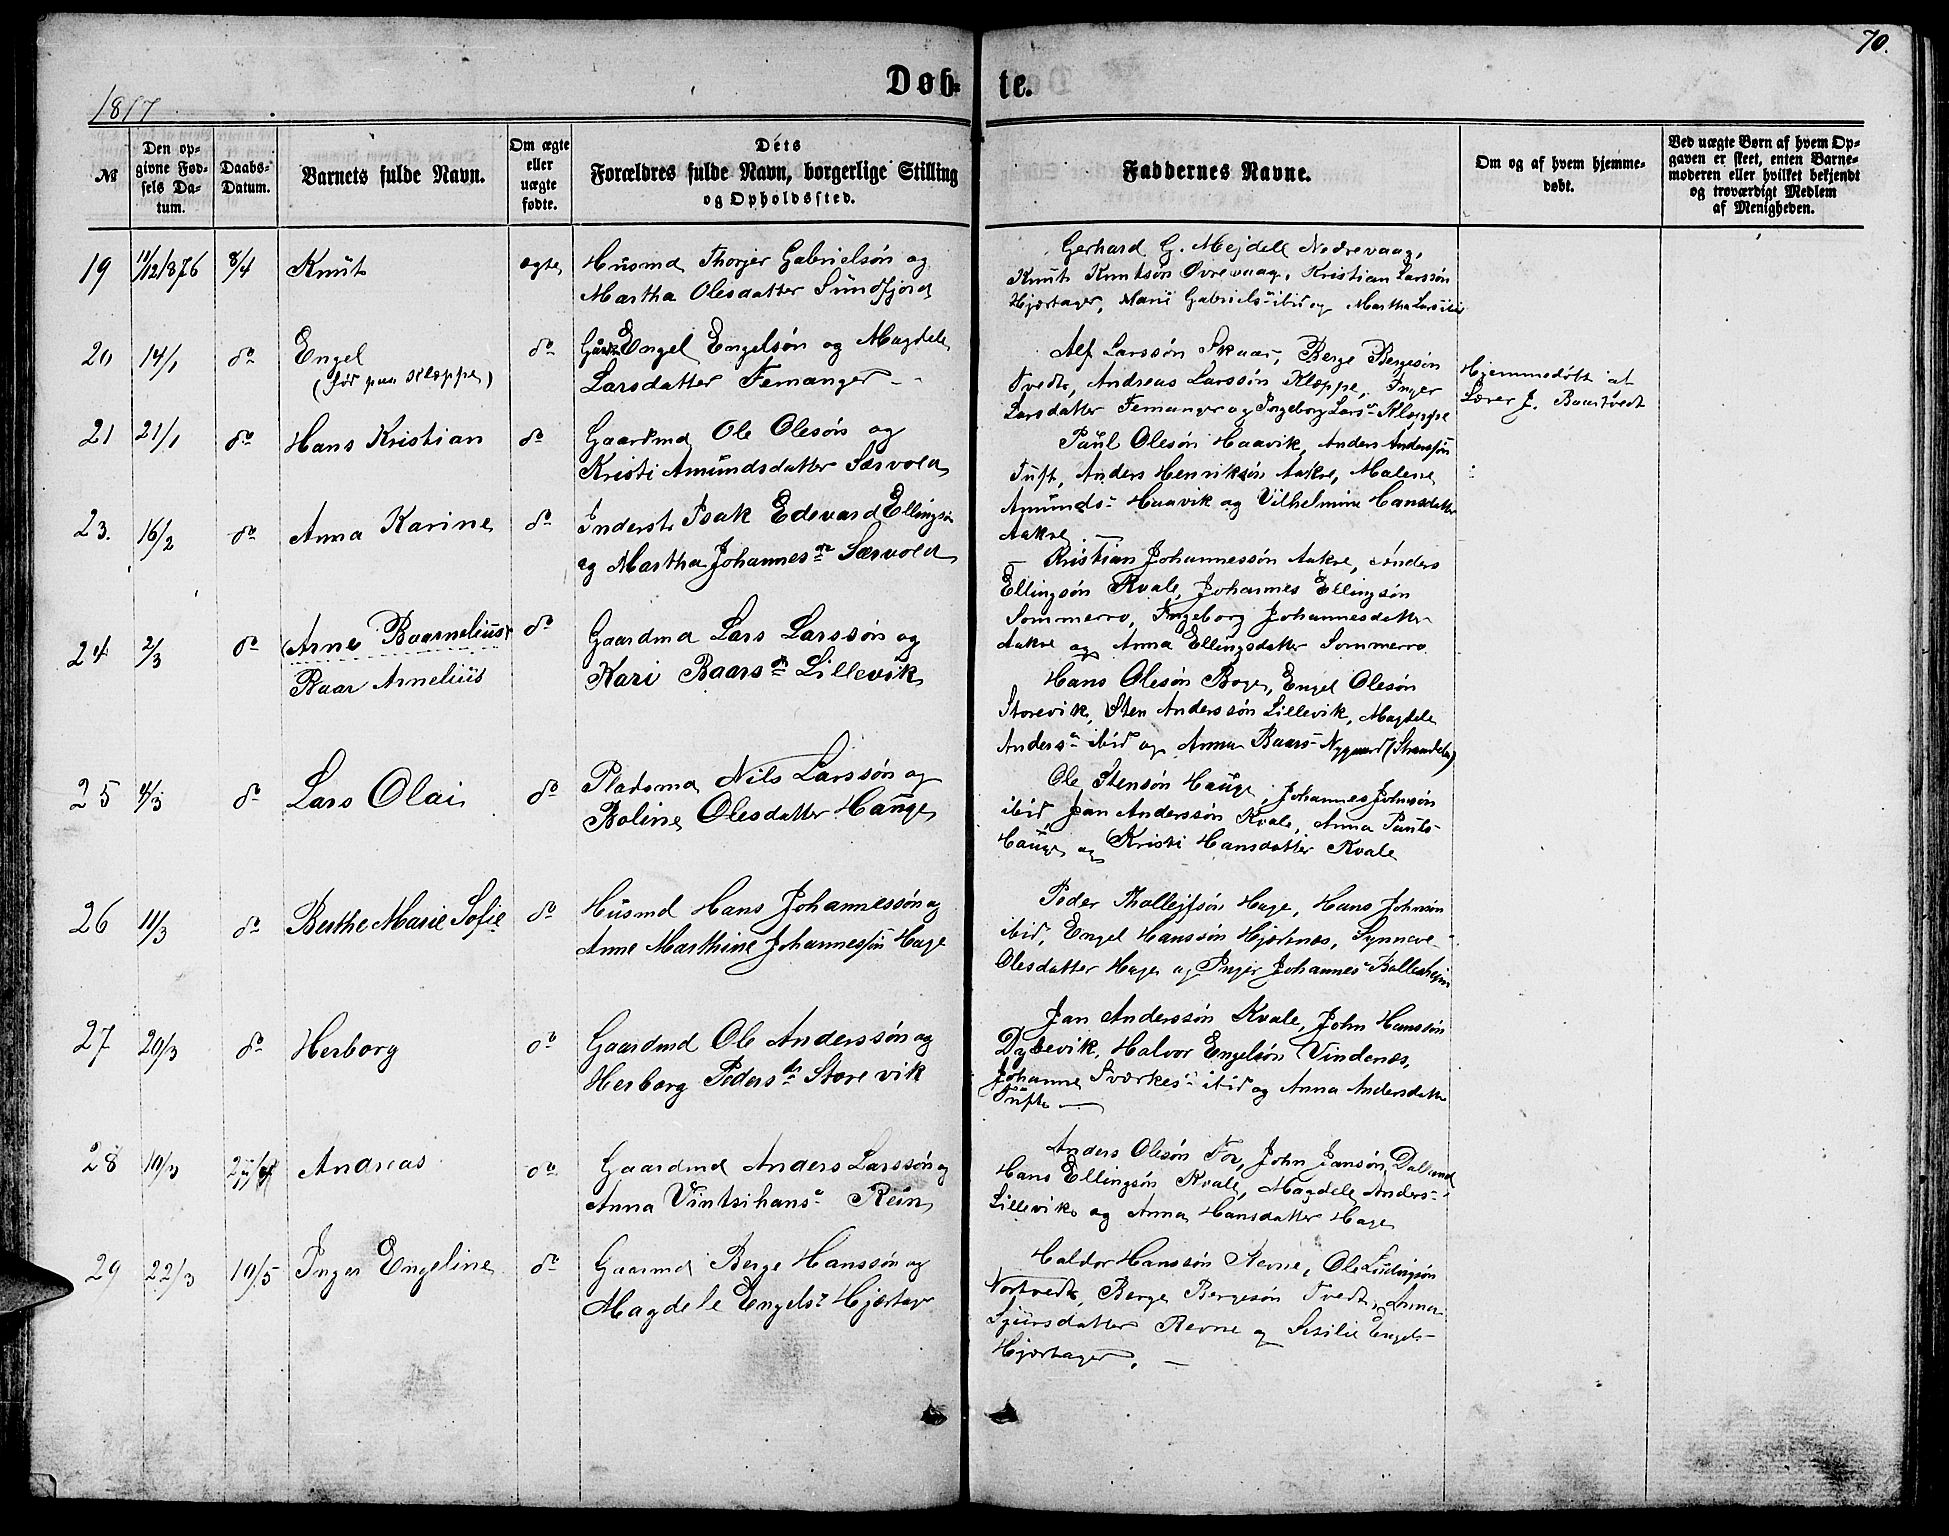 70.
Døb- te.
1877
№
Den op-
givne Fød-
sels Da-
tum.
Daabs-
Datum.
Barnets fulde Navn.
Om ægte
eller
uægte
fødte.
Dets
Forældres fulde Navn, borgerlige Stilling
og Opholdssted.
Faddernes Navne.
Om og af hvem hjemme-
døbt.
Ved uægte Børn af hvem Op-
gaven er skeet, enten Barne-
moderen eller hvilket bekjendt
og troværdigt Medlem
af Menigheden.
19 11/12 1876 8/4 Knut ægte Husmd Thorjer Gabrielsøn og
Martha Olesdatter Sundfjord
Gerhard G. Mejdell Nedrevaag,
Knut Knutsøn Øvrevaag, Kristian Larssøn
Hjærtager, Mari Gabriels- ibid og Martha Lars- ibid
20 14/1 do Engel
(før paa Kleppe)
do Gaardmd Engel Engelsøn og Magdele
Larsdatter Femanger
Alf Larssøn Skaar, Berge Bergesøn
Tvedt, Andreas Larssøn Kleppe, Inger
Larsdatter Femanger og Ingeborg Lars- Kleppe
Hjemmedøbt af
Lærer J. Baartvedt
21 21/1 do Hans Kristian do Gaardmd Ole Olesøn og
Kristi Amundsdatter Særvold
Paul Olesøn Haavik, Anders Anderssøn
Tuft, Anders Henriksøn Aakre, Malene
Amunds- Haavik og Vilhelmine Hansdatter
Aakre
23. 16/2 do Anna Karine do Inderst Isak Edevard Ellingsøn
og Martha Johannes dr Særvold
Kristian Johannessøn Aakre, Anders
Ellingsøn Kvale, Johannes Ellingsøn
Sommerro, Ingeborg Johannesdatter
Aakre og Anna Ellingsdatter Sommerro
24 2/3 do (Arne Baarnelius)
Baar Arnelius
do Gaardmd Lars Larssøn og
Kari Baars dr Lillevik
Hans Olesøn Boge, Engel Olesøn
Storevik, Sten Anderssøn Lillevik, Magdele
Anders- ibid og Anna Baars- Nygaard (Strandebg)
25 4/3 do Lars Olai do Pladsmd Nils Larssøn og
Boline Olesdatter Hauge
Ole Stensøn Hauge, Johannes Johnsøn
ibid, Jan Anderssøn Kvale, Anna Pauls-
Hauge og Kristi Hansdatter Kvale
26 11/3 do Berthe Marie Sofie do Husmd Hans Johannessøn og
Anne Marthine Johannessøn Hage
Peder Thollejfsøn Hage, Hans Johnsøn
ibid, Engel Hanssøn Hjertnæs, Synneve
Olesdatter Hage og Inger Johannes- Bolleshejm
27 20/3 do Herborg do Gaardmd Ole Anderssøn og
Herborg Peders dr Storevik
Jan Anderssøn Kvale, John Hanssøn
Dybevik, Halvor Engelsøn Vindenæs,
Johanne Sværkes- ibid og Anna Andersdatter
Tufte
28 10/3 22/4 Andreas do Gaardmd Anders Larssøn og
Anna Vintsihans- Rein
Anders Olesøn For, John Jansøn Dalland
Hans Ellingsøn Kvale, Magdele Anders-
Lillevik og Anna Hansdatter Hage
29 22/3 10/5 Inger Engeline do Gaarmd Berge Hanssøn og
Magdele Engels- Hjærtager
Haldor Hanssøn Revne, Ole Ludvigsøn
Nortvedt, Berge Bergesøn Tvedt, Anna
Sjursdatter Revne og Sesilie Engels-
Hjærtager.